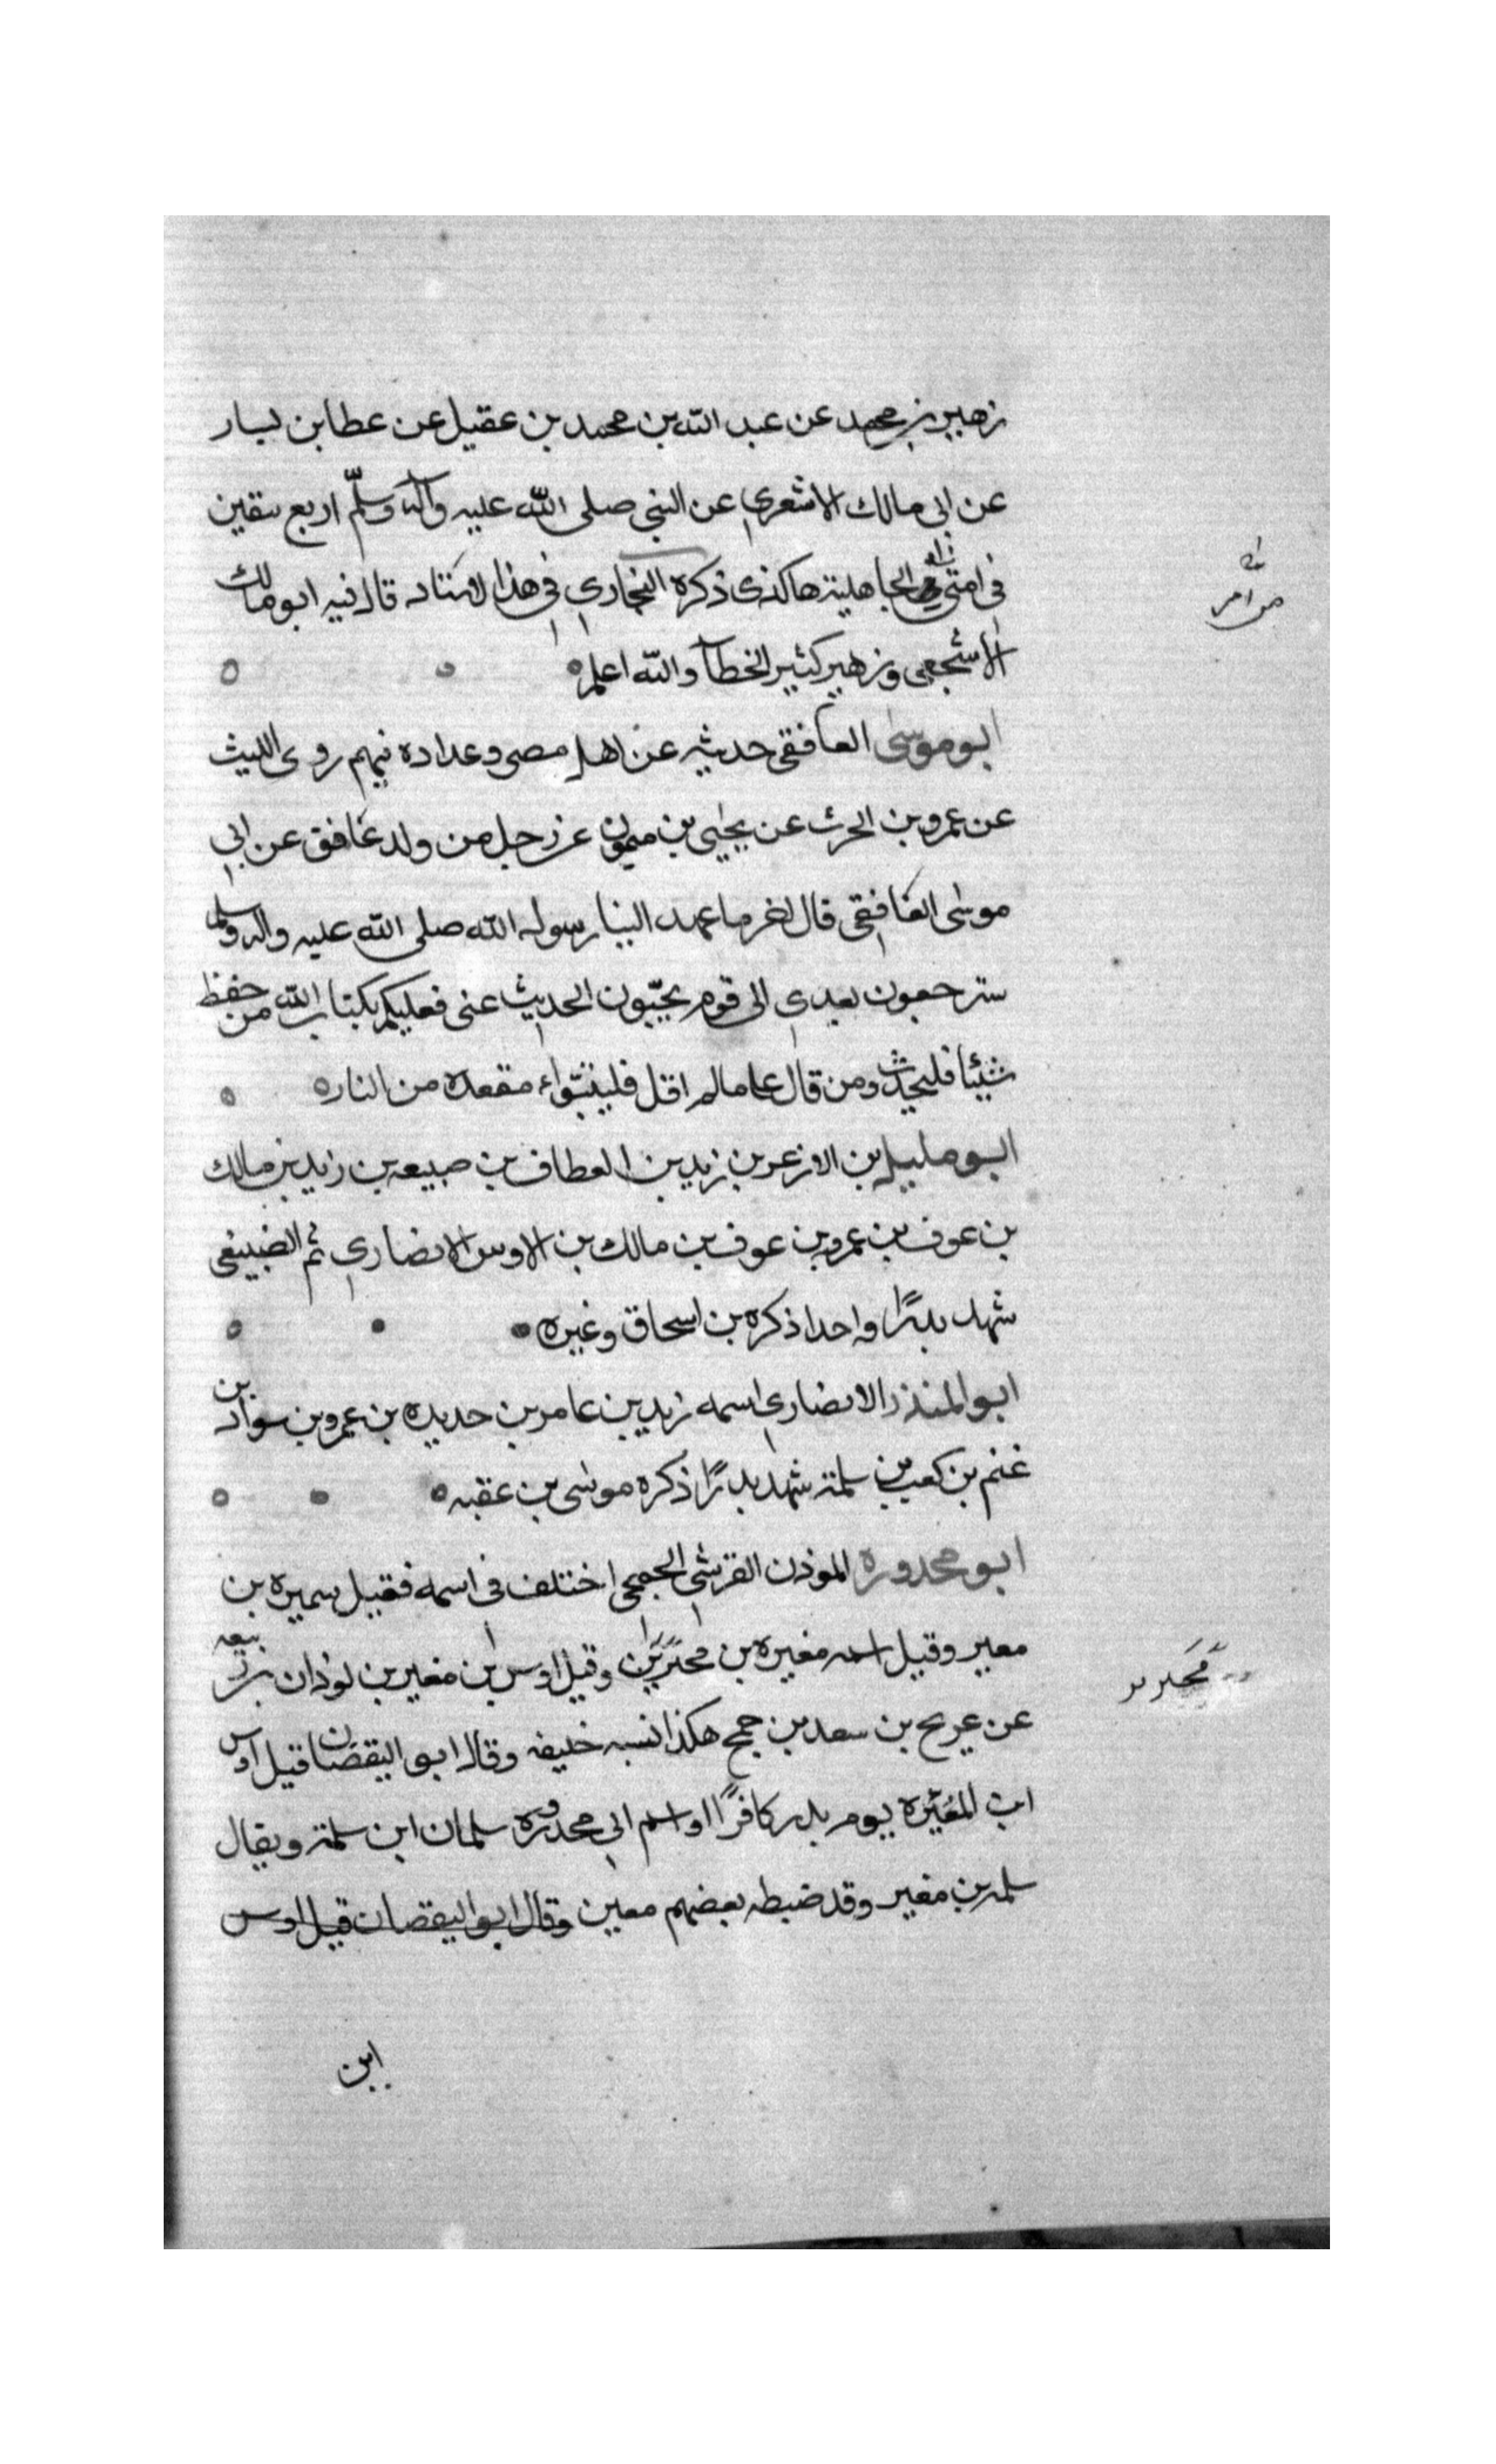 زهير بن محمد عن عبد الله بن محمد بن عقيل عن عطا بن يسار
عن ابي مالك الاشعري عن النبي صلى الله عليه وآله وسلّم اربع يبقين
في امتي من الجاهلية هاكذى ذكره البخاري في هذا الاسناد قال فيه ابو مالك
الاشجعي وزهير كثير الخطآ والله اعلم
ابو موسى الغافقي حديثه عن اهل مصر وعداده فيهم روى الليث
عن عمرو بن الحرث عن يحيى بن ميمون عن رجل من ولد غافق عن ابي
موسى الغافقي قال اخر ما عهد الينا رسول الله صلى الله عليه واله وسلم
سترجعون بعدي الى قوم يحبّون الحديث عني فعليكم بكتاب الله من حفظ
شيئا فليحدّث ومن قال عليا مالم اقل فليتبوّاء مقعده من النار
ابو مليل بن الازعر بن زيد بن العطاف بن ضبيعه بن زيد بن مالك
بن عوف بن عمرو بن عوف بن مالك بن الاوس الانصاري ثم الضبيعي
شهد بدرًا واحدا ذكره بن اسحاق وغيره
ابو المنذر الانصاري اسمه زيد بن عامر بن حديده بن عمرو بن سواد بن
غنم بن كعب بن سلمة شهد بدرًا ذكره موسى بن عقبه
ابو محدوره الموذن القرشي الجمحي اختلف في اسمه فقيل سميره بن
معير وقيل اسمه مغيره بن محيريز وقيل اوس بن مغير بن لوذان بن ربيعه
عن عريج بن سعد بن جمح هكذا نسبه خليفه وقال ابو اليقضان قيل اوس
ابن المغيره يوم بدر كافرًا واسم ابي محدوره سلمان ابن سلمة ويقال
سلمه بن مغير وقد ضبطه بعضهم معين وقال ابو اليقضان قيل اوس
ابن